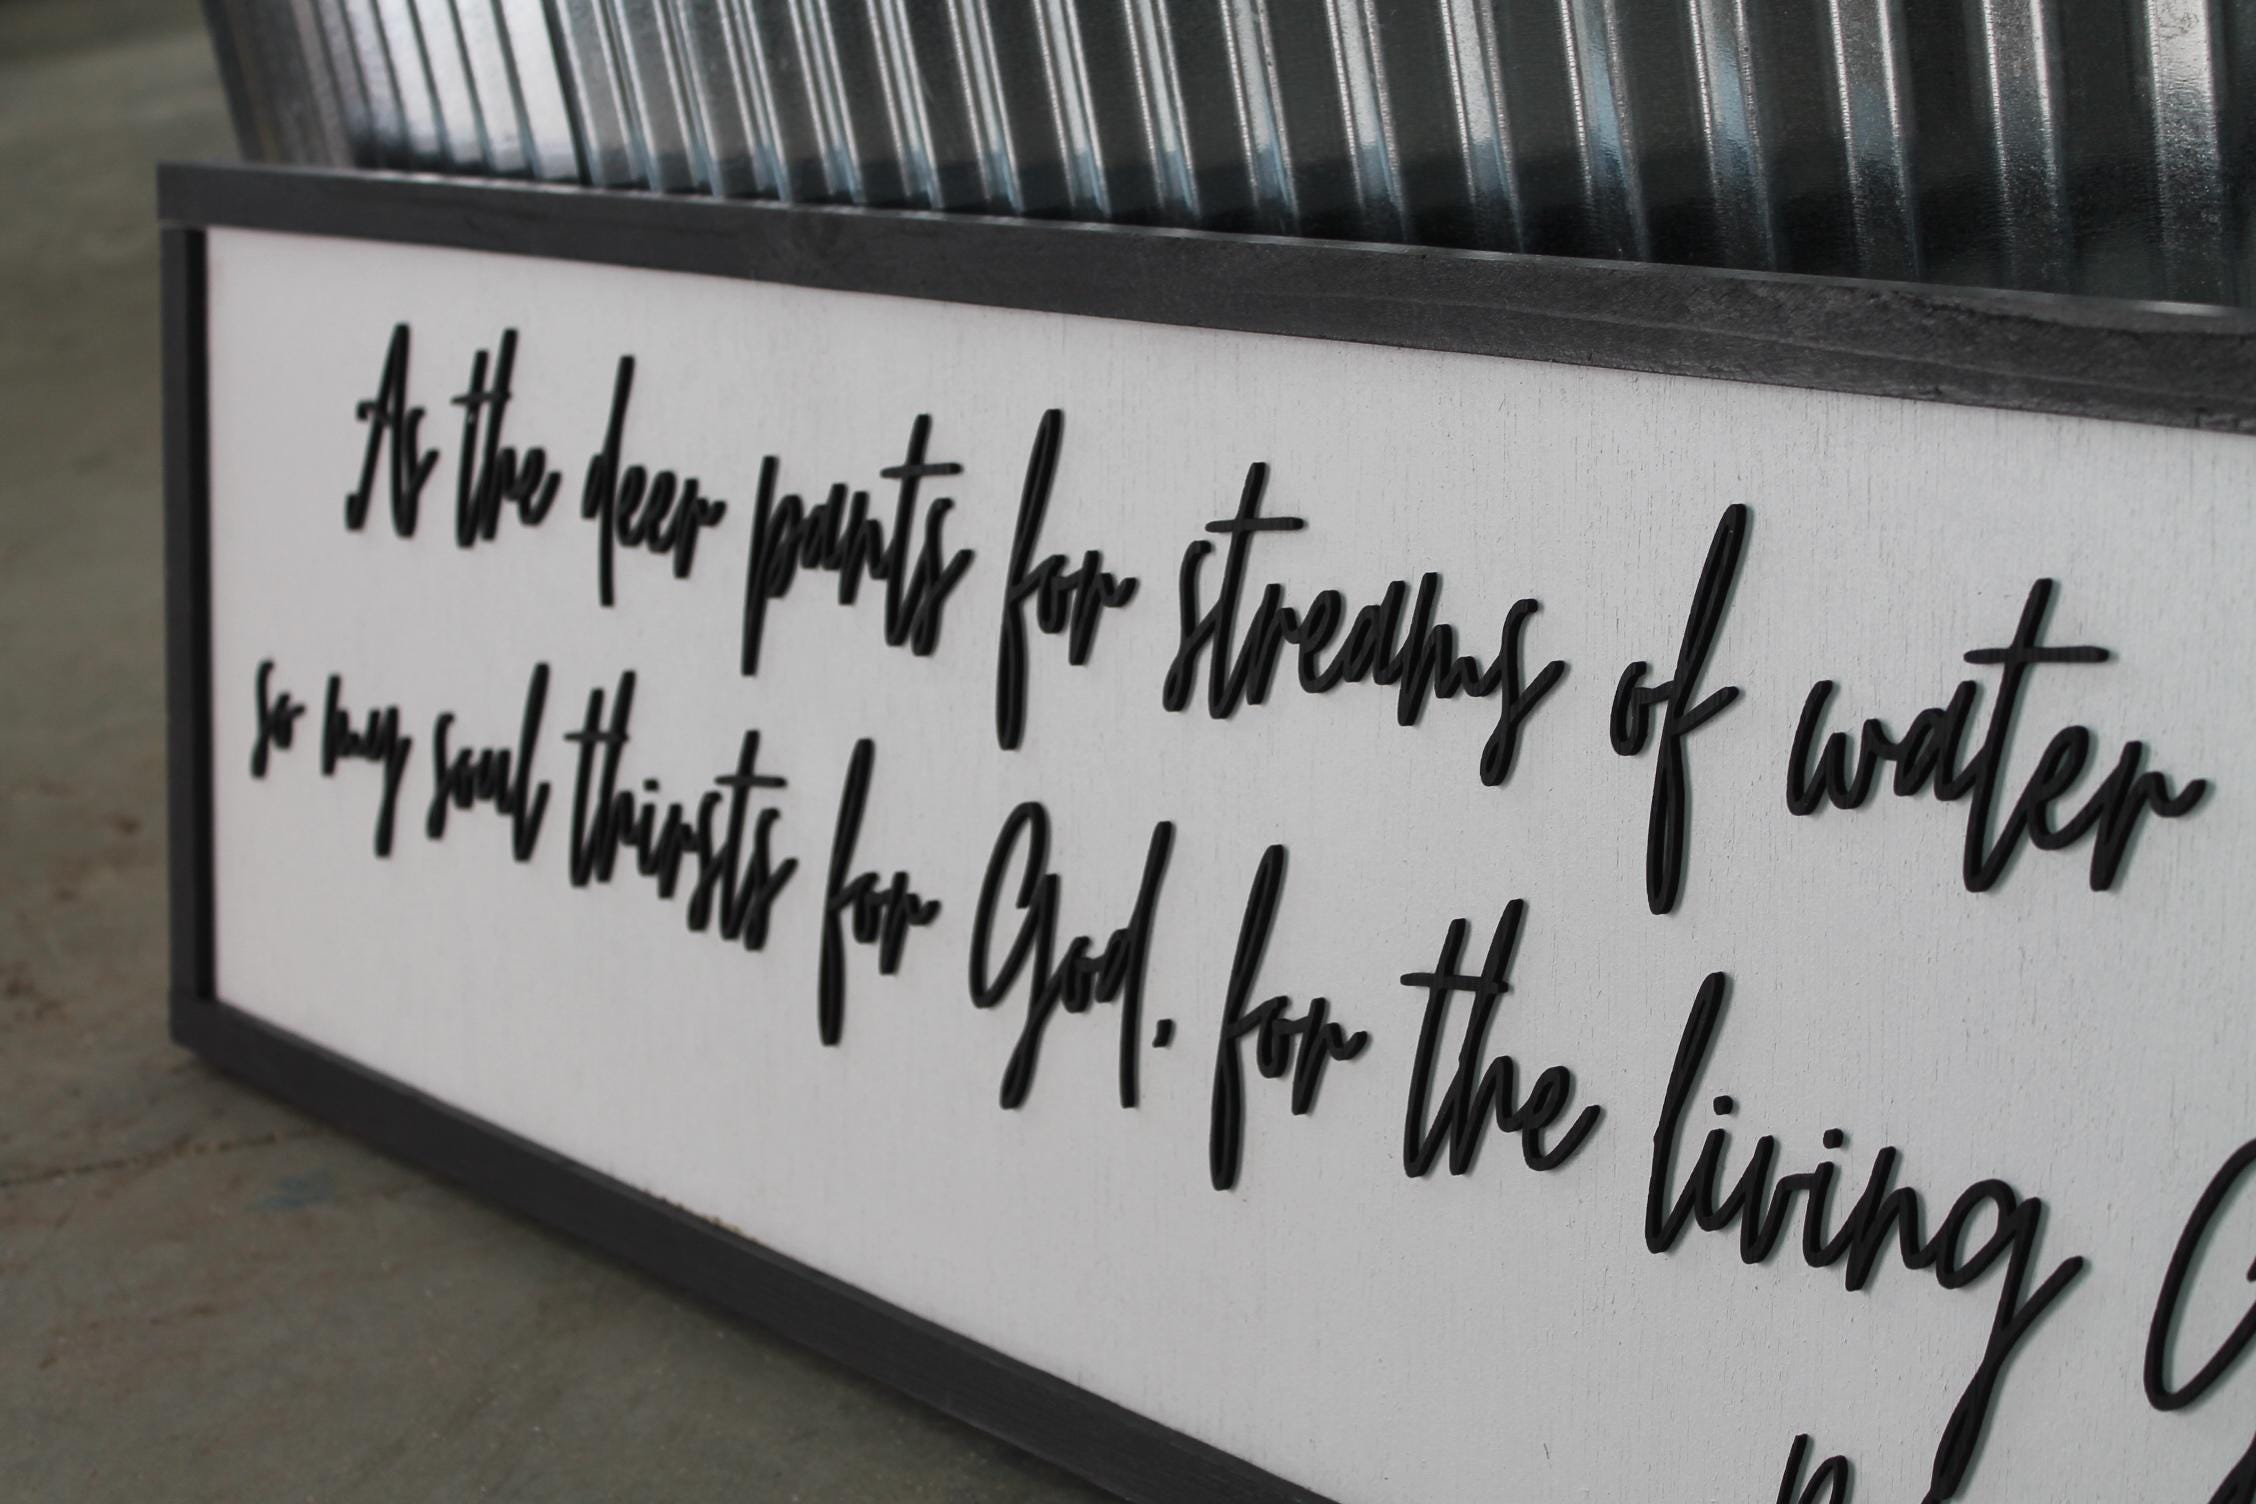 As the deer pants for streams of water
so my soul thirsts for God, for the living